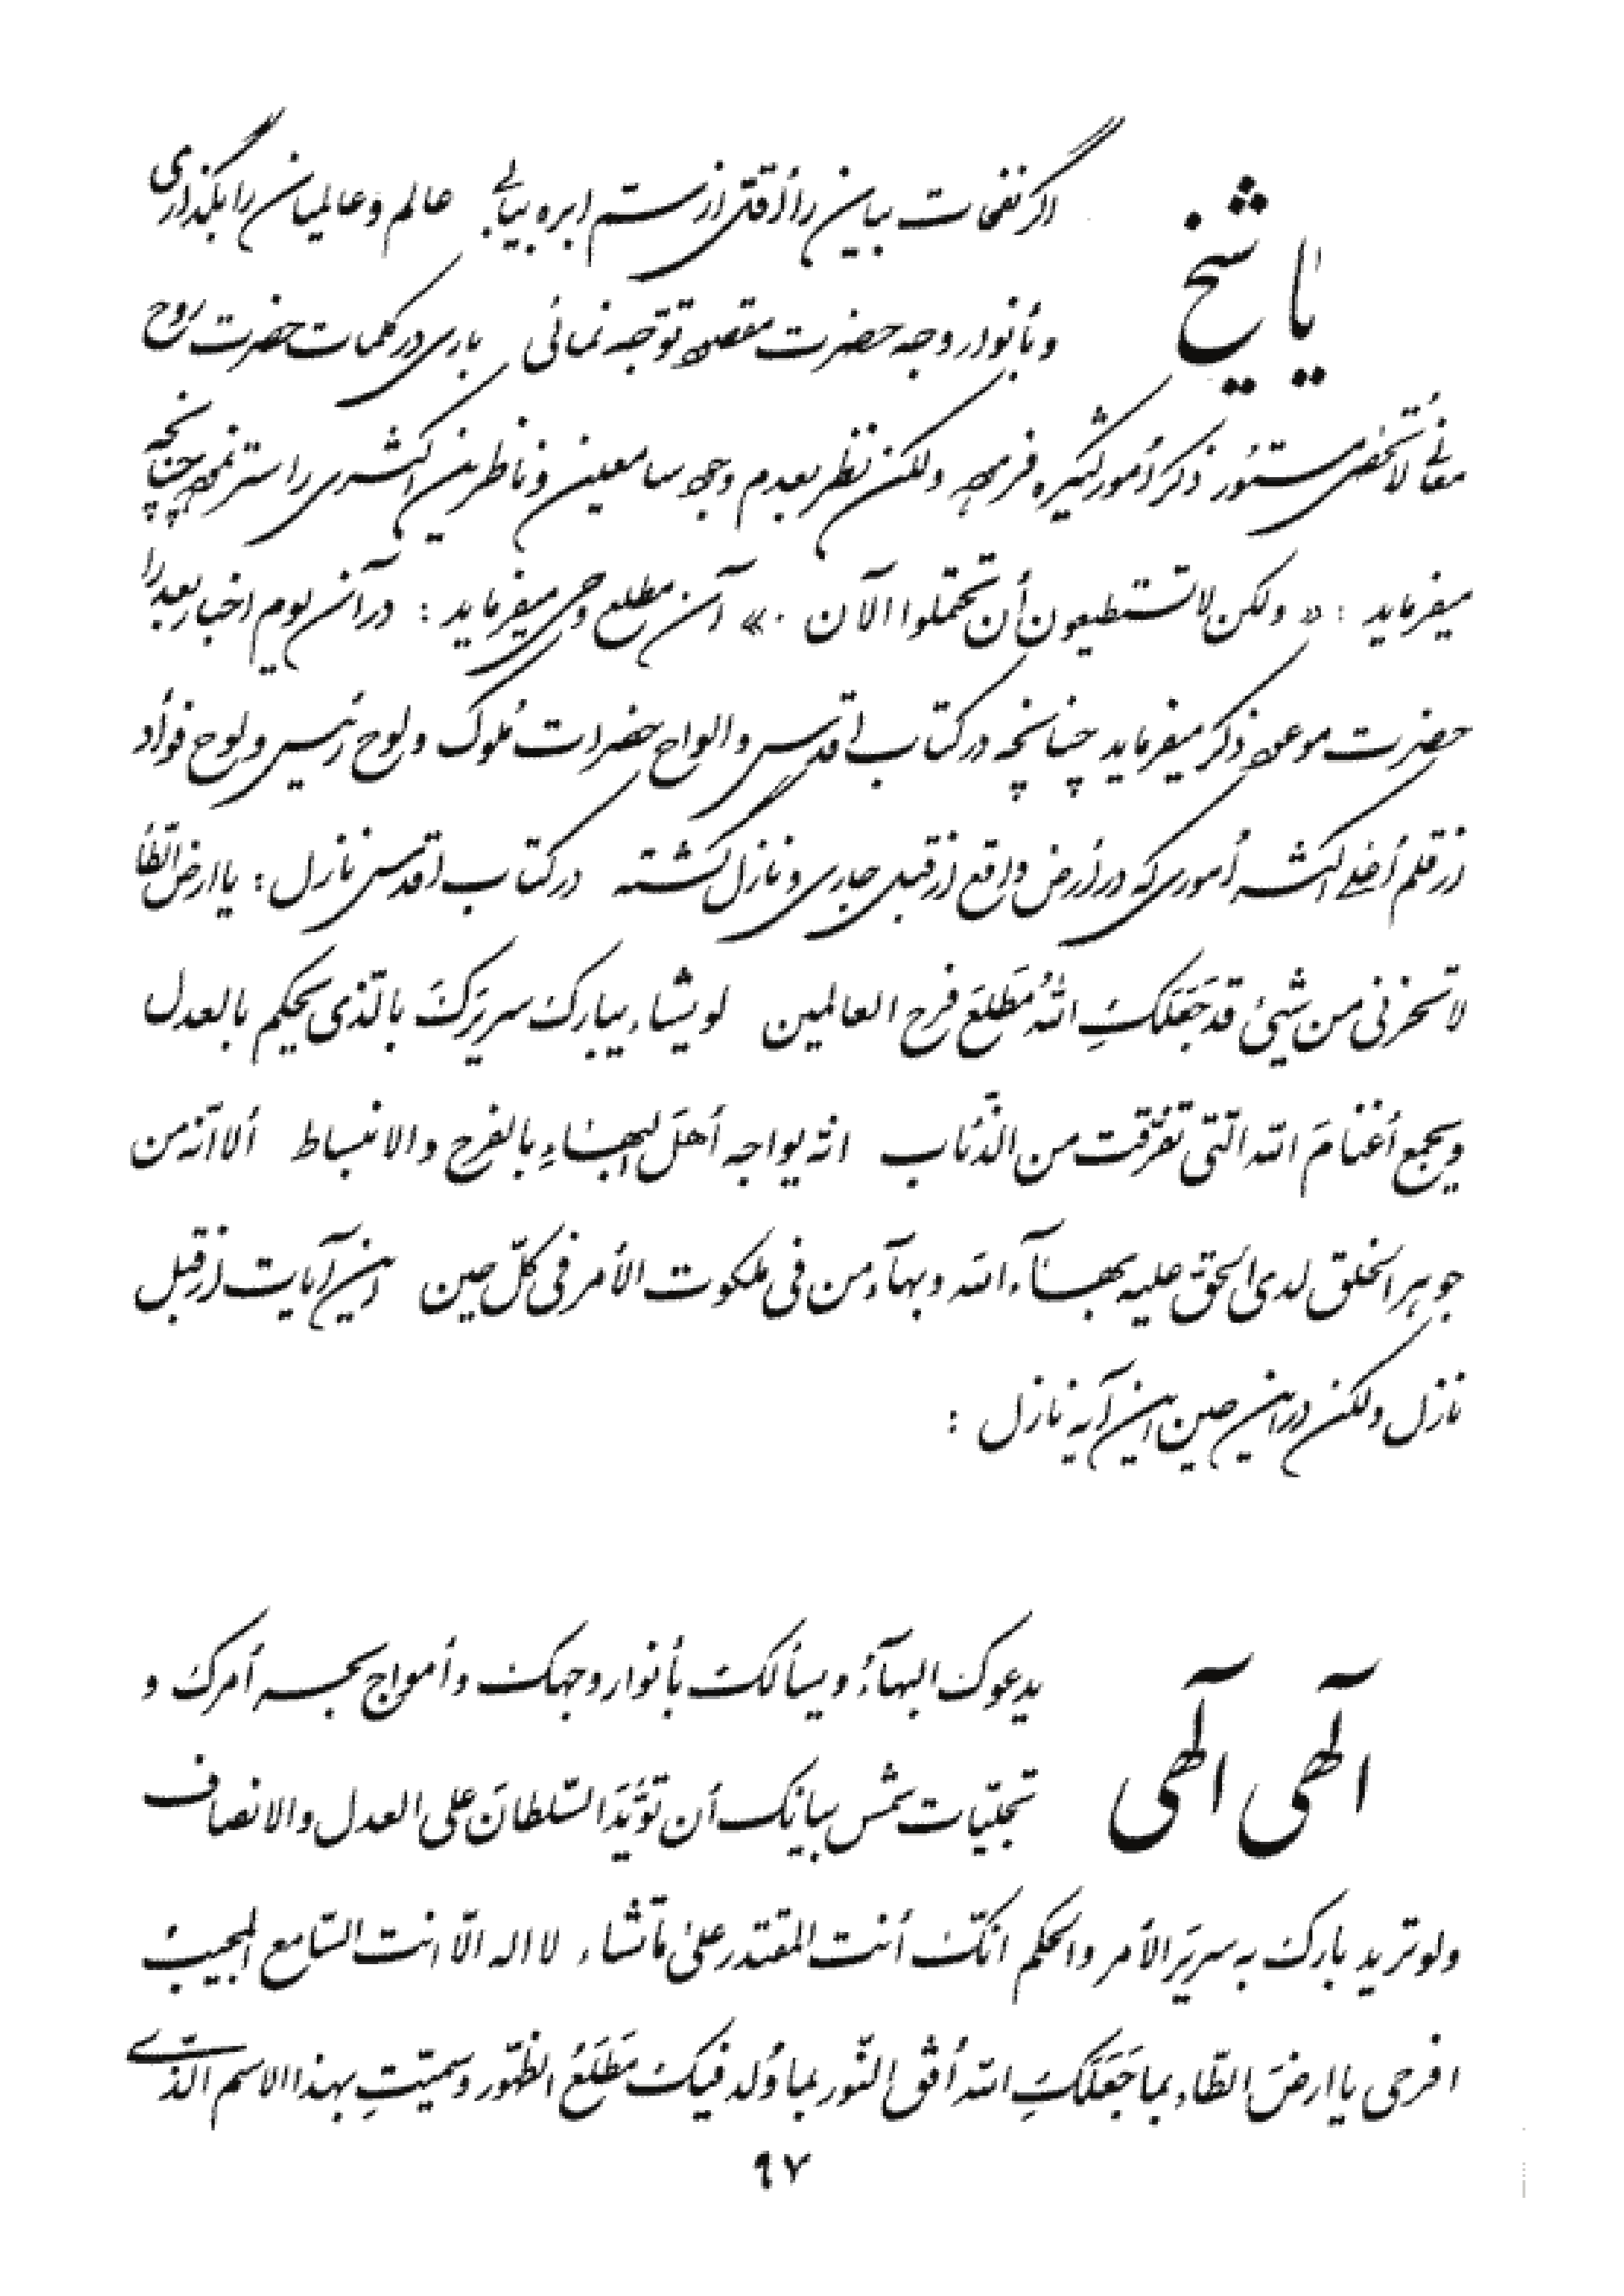 یا شیخ
اگر نفحات بیان را أقلّ از سمّ ابره بیابی عالم و عالمیان را بگذاری
و بأنوار وجه حضرت مقصود توجّه نمائی باری در کلمات حضرت روح
معانی لا تحصی مستور ذکر أمور کثیره فرموده ولکن نظر بعدم وجود سامعین و ناظرین اکثری را ستر نموده چنانچه
میفرماید : « ولکن لا تستطیعون أن تحتملوا الآن ٠» آن مطلع وحی میفرماید : در آن یوم اخبار بعد را
حضرت موعود ذکر میفرماید چنانچه در کتاب اقدس و الواح حضرات مُلوک و لوح رئیس و لوح فؤاد
از قلم أعلی اکثر أموری که در أرض واقع از قبل جاری و نازل گشته در کتاب اقدس نازل : یا ارض الطّاء
لا تحزنی من شیئ قد جَعَلَکِ اللهُ مَطلَعَ فرح العالمین لو یشاء یبارک سریرَکَ بالّذی یحکم بالعدل
و یجمع أغنامَ الله الّتی تفرّقت من الذّئاب انّه یواجه أهلَ البهاءِ بالفرح و الانبساط ألا انّه من
جوهر الخلق لدی الحقّ علیه بهآء الله و بهآء من فی ملکوت الأمر فی کلّ حین این آیات از قبل
نازل ولکن در این حین این آیه نازل :
آلهی آلهی
یدعوک البهآءُ و یسألک بأنوار وجهک و أمواج بحر أمرک و
تجلّیات شمس بیانک أن تؤیّدَ السّلطانَ علی العدل و الانصاف
ولو ترید بارک به سریرَ الأمر و الحکم انّک أنت المقتدر علیٰ ما تشاء لا اله الّا انت السّامع المجیب
افرحی یا ارضَ الطّاء بما جَعَلَکِ الله أفق النّور بما وُلد فیک مَطلَعُ الظّهور و سمیّتِ بهذا الاسم الّذی
٩٧